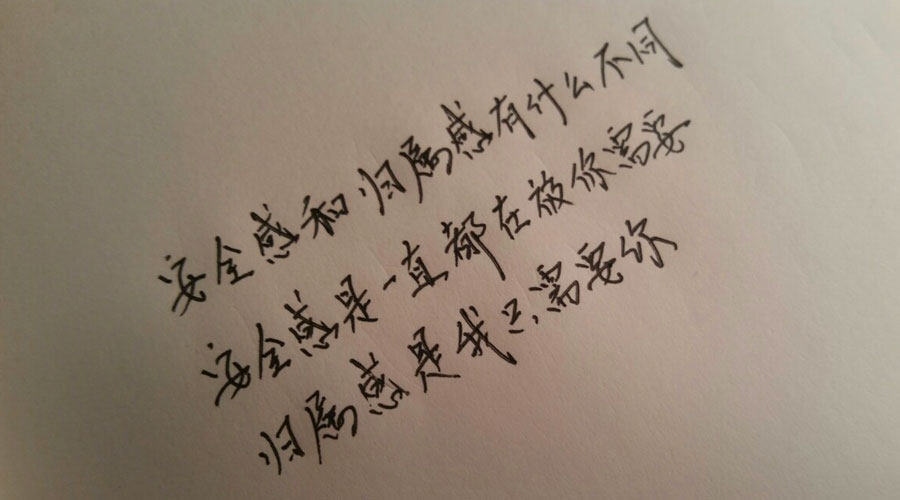 安全感和归属感有什么不同
安全感是一直都在被你需要
归属感是我只需要你